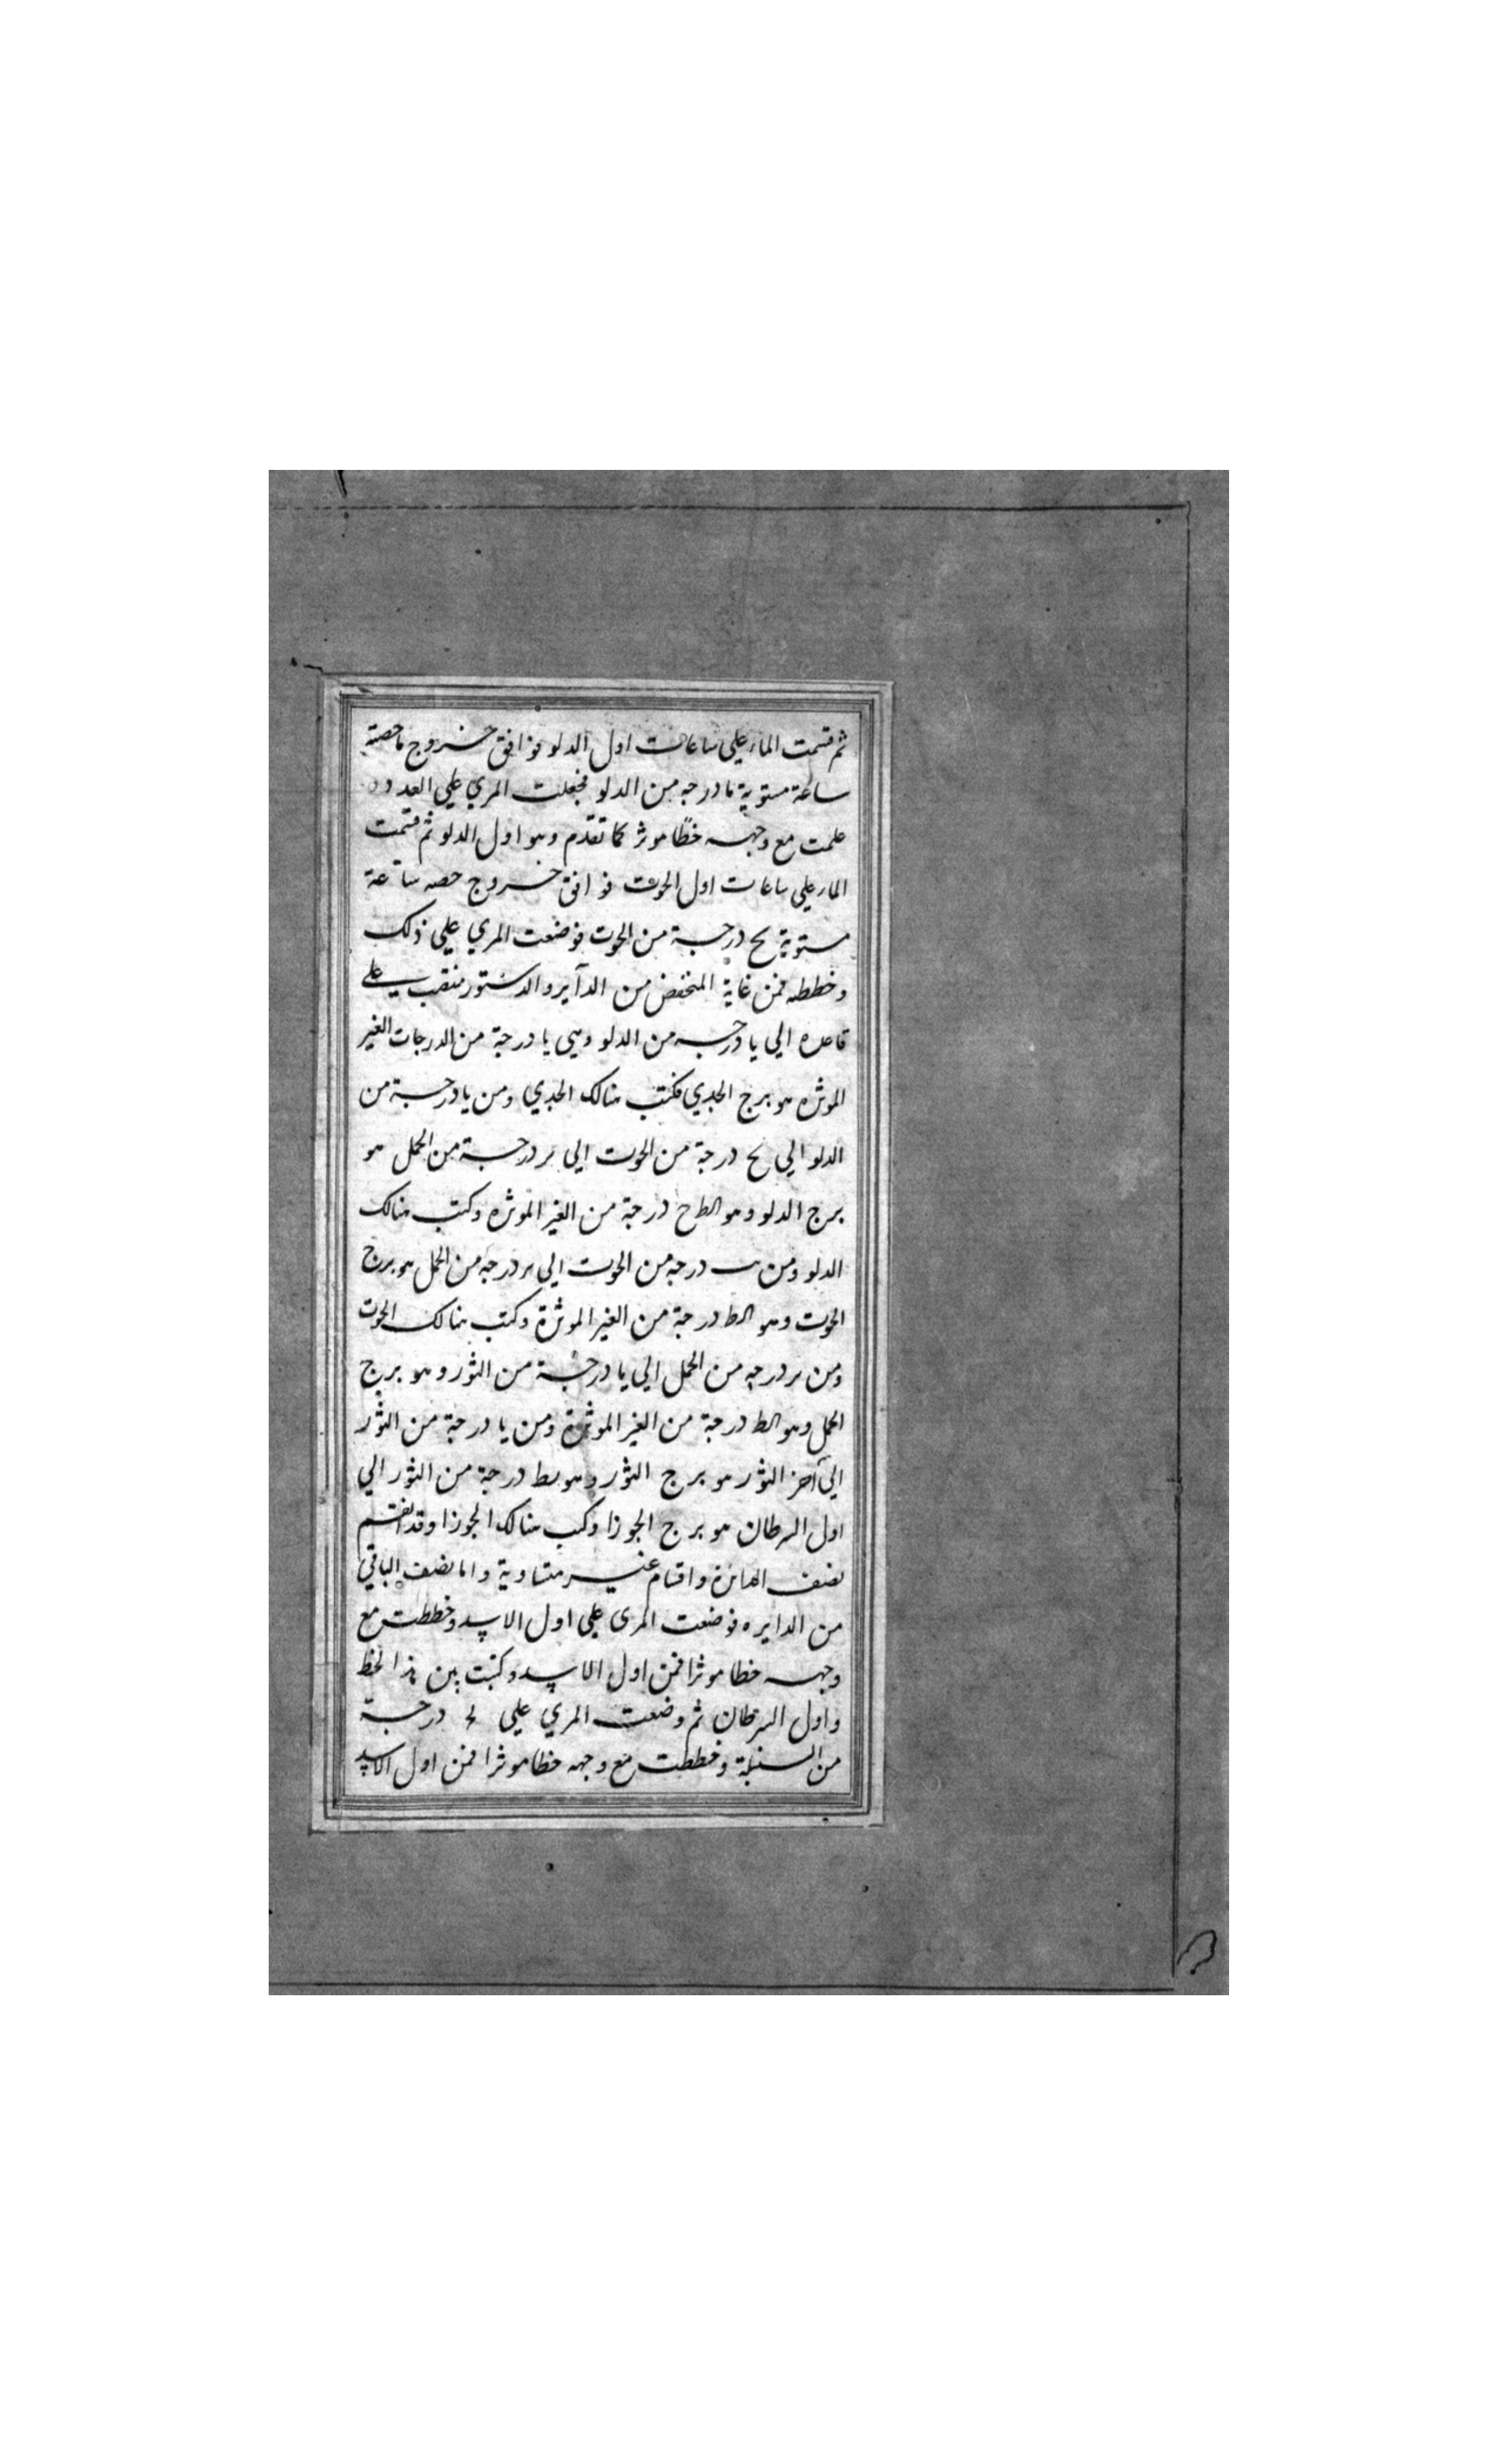 ثم قسمت الماء علي ساعات اول الدلو فوافق خروج ما حصته
ساعة مستوية يا درجه من الدلو فجعلت المري علي العدد و
علمت مع وجهه خطا موثر كما تقدم وهو اول الدلو ثم قسمت
الماء علي ساعات اول الحوت فوافق خروج حصه ساعة
مستوية كح درجة من الحوت فوضعت المري علي ذلك
وخططه فمن غاية المنخفض من الدآير والدستور منتصب علي
قاعده الي يا درجه من الدلو وهي يا درجة من الدرجات الغير
الموثره هو برج الجدي فكتب هنالك الجدي ومن يا درجة من
الدلو الي كح درجة من الحوت الي ىر درجة من الحمل هو
برج الدلو وهو درجة من الغير الموثره وكتب هنالك
الدلو ومن درجه من الحوت الي ىر درجه من الحمل هو برج
الحوت وهو درجة من الغير الموثرة وكتب هنالك الحوت
ومن ىر درجه من الحمل الي يا درجة من الثور وهو برج
الحمل وهو درجة من الغير الموثرة ومن يا درجة من الثور
الي آخر الثور هو برج الثور وهو ىط درجة من الثور الي
اول السرطان هو برج الجوزا وكتب هنالك الجوزا وقد انقسم
نصف الدائرة واقسام غير متساوية واما نصف الباقي
من الدايره فوضعت المرى علي اول الاسد وخططت مع
وجهه خطا موثرا فمن اول الاسد وكتبت بين هذا الخط
واول السرطان ثم وضعت المري علي درجة
من السنبلة وخططت مع وجهه خطا موثرا فمن اول الاسد